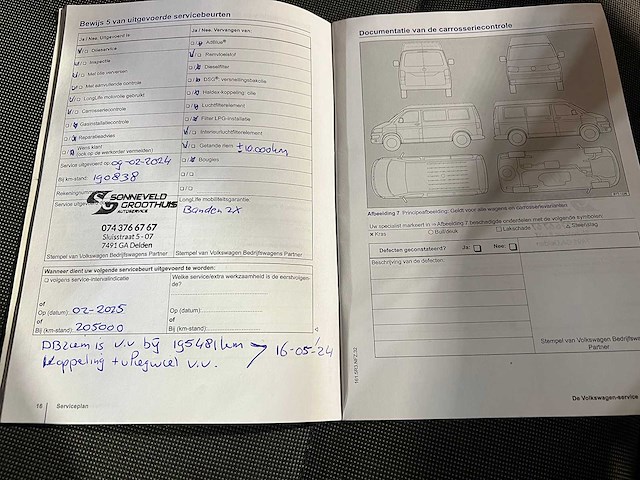 Bewijs 5 van uitgevoerde servicebeurten
Ja / Nee: Uitgevoerd is
Olieservice
Inspectie
Met olie verversen
Met aanvullende controle
LongLife motorolie gebruikt
Carrosseriecontrole
Gasinstallatiecontrole
Reparatieadvies
Wens klant
(ook op de werkorder vermelden)
Service uitgevoerd op: 09-02-2024
Bij km-stand: 190838
Rekeningnummer
Service uitgevoerd
SONNEVELD
GROOTHUIS
AUTOSERVICE
074 376 67 67
Sluisstraat 5 - 07
7491 GA Delden
Stempel van Volkswagen Bedrijfswagens Partner
Ja / Nee: Vervangen van:
AdBlue®
Remvloeistof
Dieselfilter
DSG®, versnellingsbakolie
Haldex-koppeling: olie
Luchtfilterelement
Filter LPG-installatie
Interieurluchtfilterelement
Getande riem ±10.000km
Bougies
LongLife mobiliteitsgarantie:
Banden 2x
Stempel van Volkswagen Bedrijfswagens Partner
Wanneer dient uw volgende servicebeurt uitgevoerd te worden:
volgens service-intervalindicatie
of
Op (datum): 02-2025
of
Bij (km-stand): 205000
Welke service/extra werkzaamheid is de eerstvolgen-
de?
Op (datum):
of
Bij (km-stand):
DBriem is v.v bij 195481km > 16-05-'24
Koppeling + vliegwiel v.v.
18 Serviceplan
Documentatie van de carrosseriecontrole
Afbeelding 7 Principeafbeelding: Geldt voor alle wagens en carrosserievarianten
Uw specialist markeert in ⇒ Afbeelding 7 beschadigde onderdelen met de volgende symbolen:
× Kras
Buil/deuk
Lakschade
Steenslag
Defecten geconstateerd? Ja: Nee:
Beschrijving van de defecten:
Stempel van Volkswagen Bedrijfswagens
Partner
De Volkswagen-service